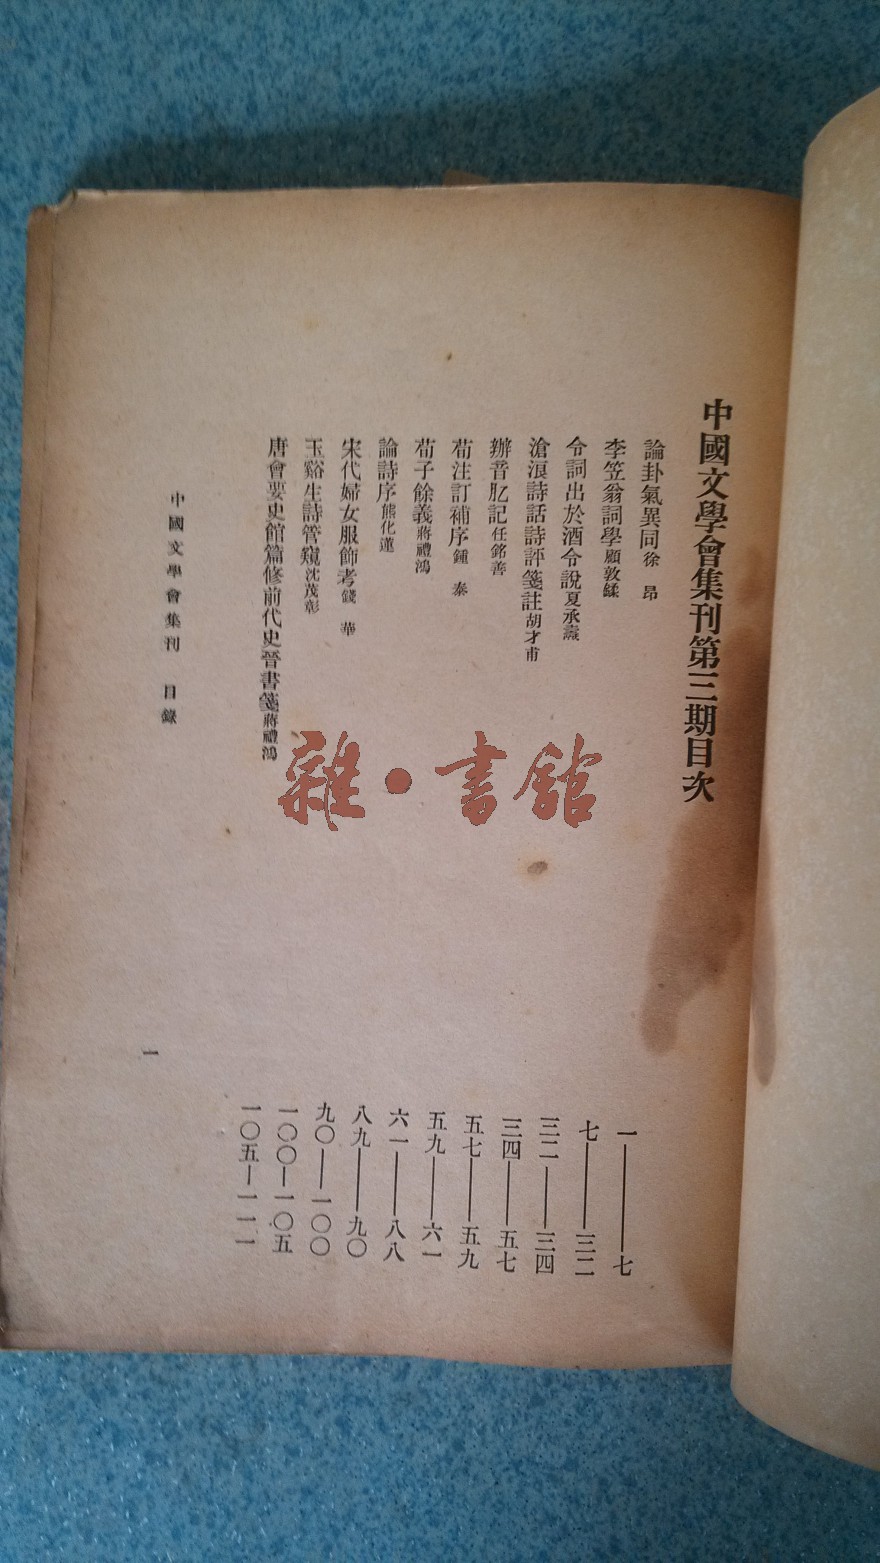 中國文學會集刊第三期目次
論卦氣異同 徐 昂 一——七
李笠翁詞學 顧敦鍒 七——三二
令詞出於酒令說 夏承燾 三二——三四
滄浪詩話詩評箋註 胡才甫 三四——五七
辦音肊記 任銘善 五七——五九
荀注訂補序 鍾 泰 五九——六一
荀子餘義 蔣禮鴻 六一——八八
論詩序 熊化蓮 八九——九〇
宋代婦女服飾考 錢 華 九〇——一〇〇
玉谿生詩管窺 沈茂彰 一〇〇—一〇五
唐會要史館篇修前代史晉書箋 蔣禮鴻 一〇五—一一一
中國文學會集刊 目錄
一
雜·書館